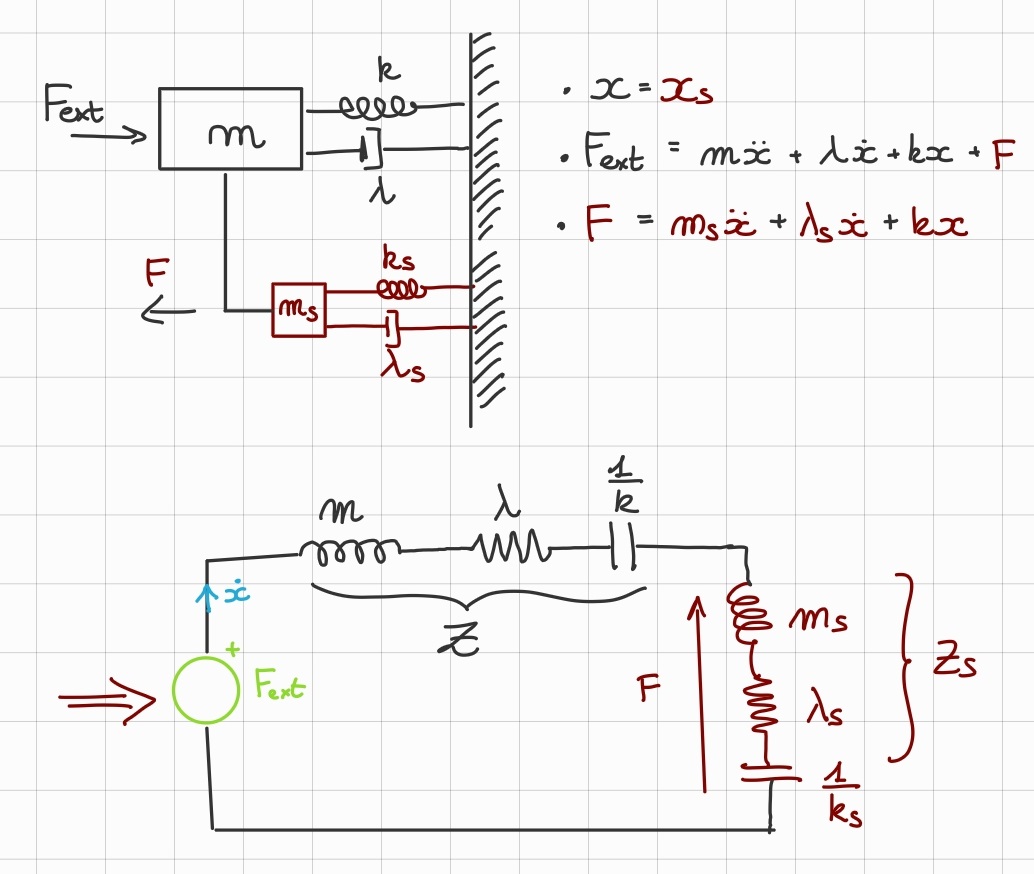 k
F_ext
m
λ
F
k_s
m_s
λ_s
• x = x_s
• F_ext = mẍ + λẋ + kx + F
• F = m_sẍ + λ_sẋ + kx
m
λ
1/k
ẋ
Z
+
F_ext
F
m_s
λ_s
1/k_s
Z_s